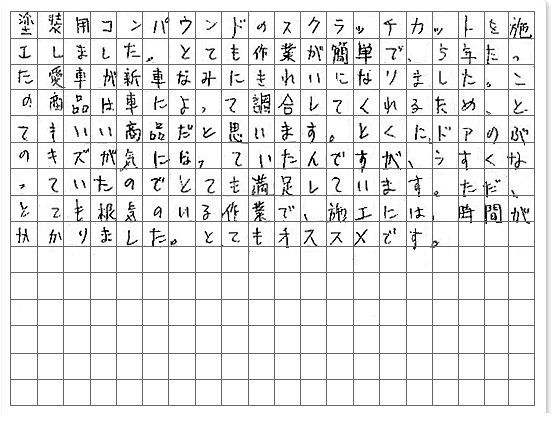 塗装用コンパウンドのスクラッチカットを施
工しました。とても作業が簡単で、5年たっ
た愛車が新車なみにきれいになりました。こ
の商品は車によって調合してくれるため、と
てもいい商品だと思います。とくに、ドアのぶ
のキズが気になっていたんですが、うすくな
っていたのでとても満足しています。ただ、
とても根気のいる作業で、施工には、時間が
かかりました。とてもオススメです。